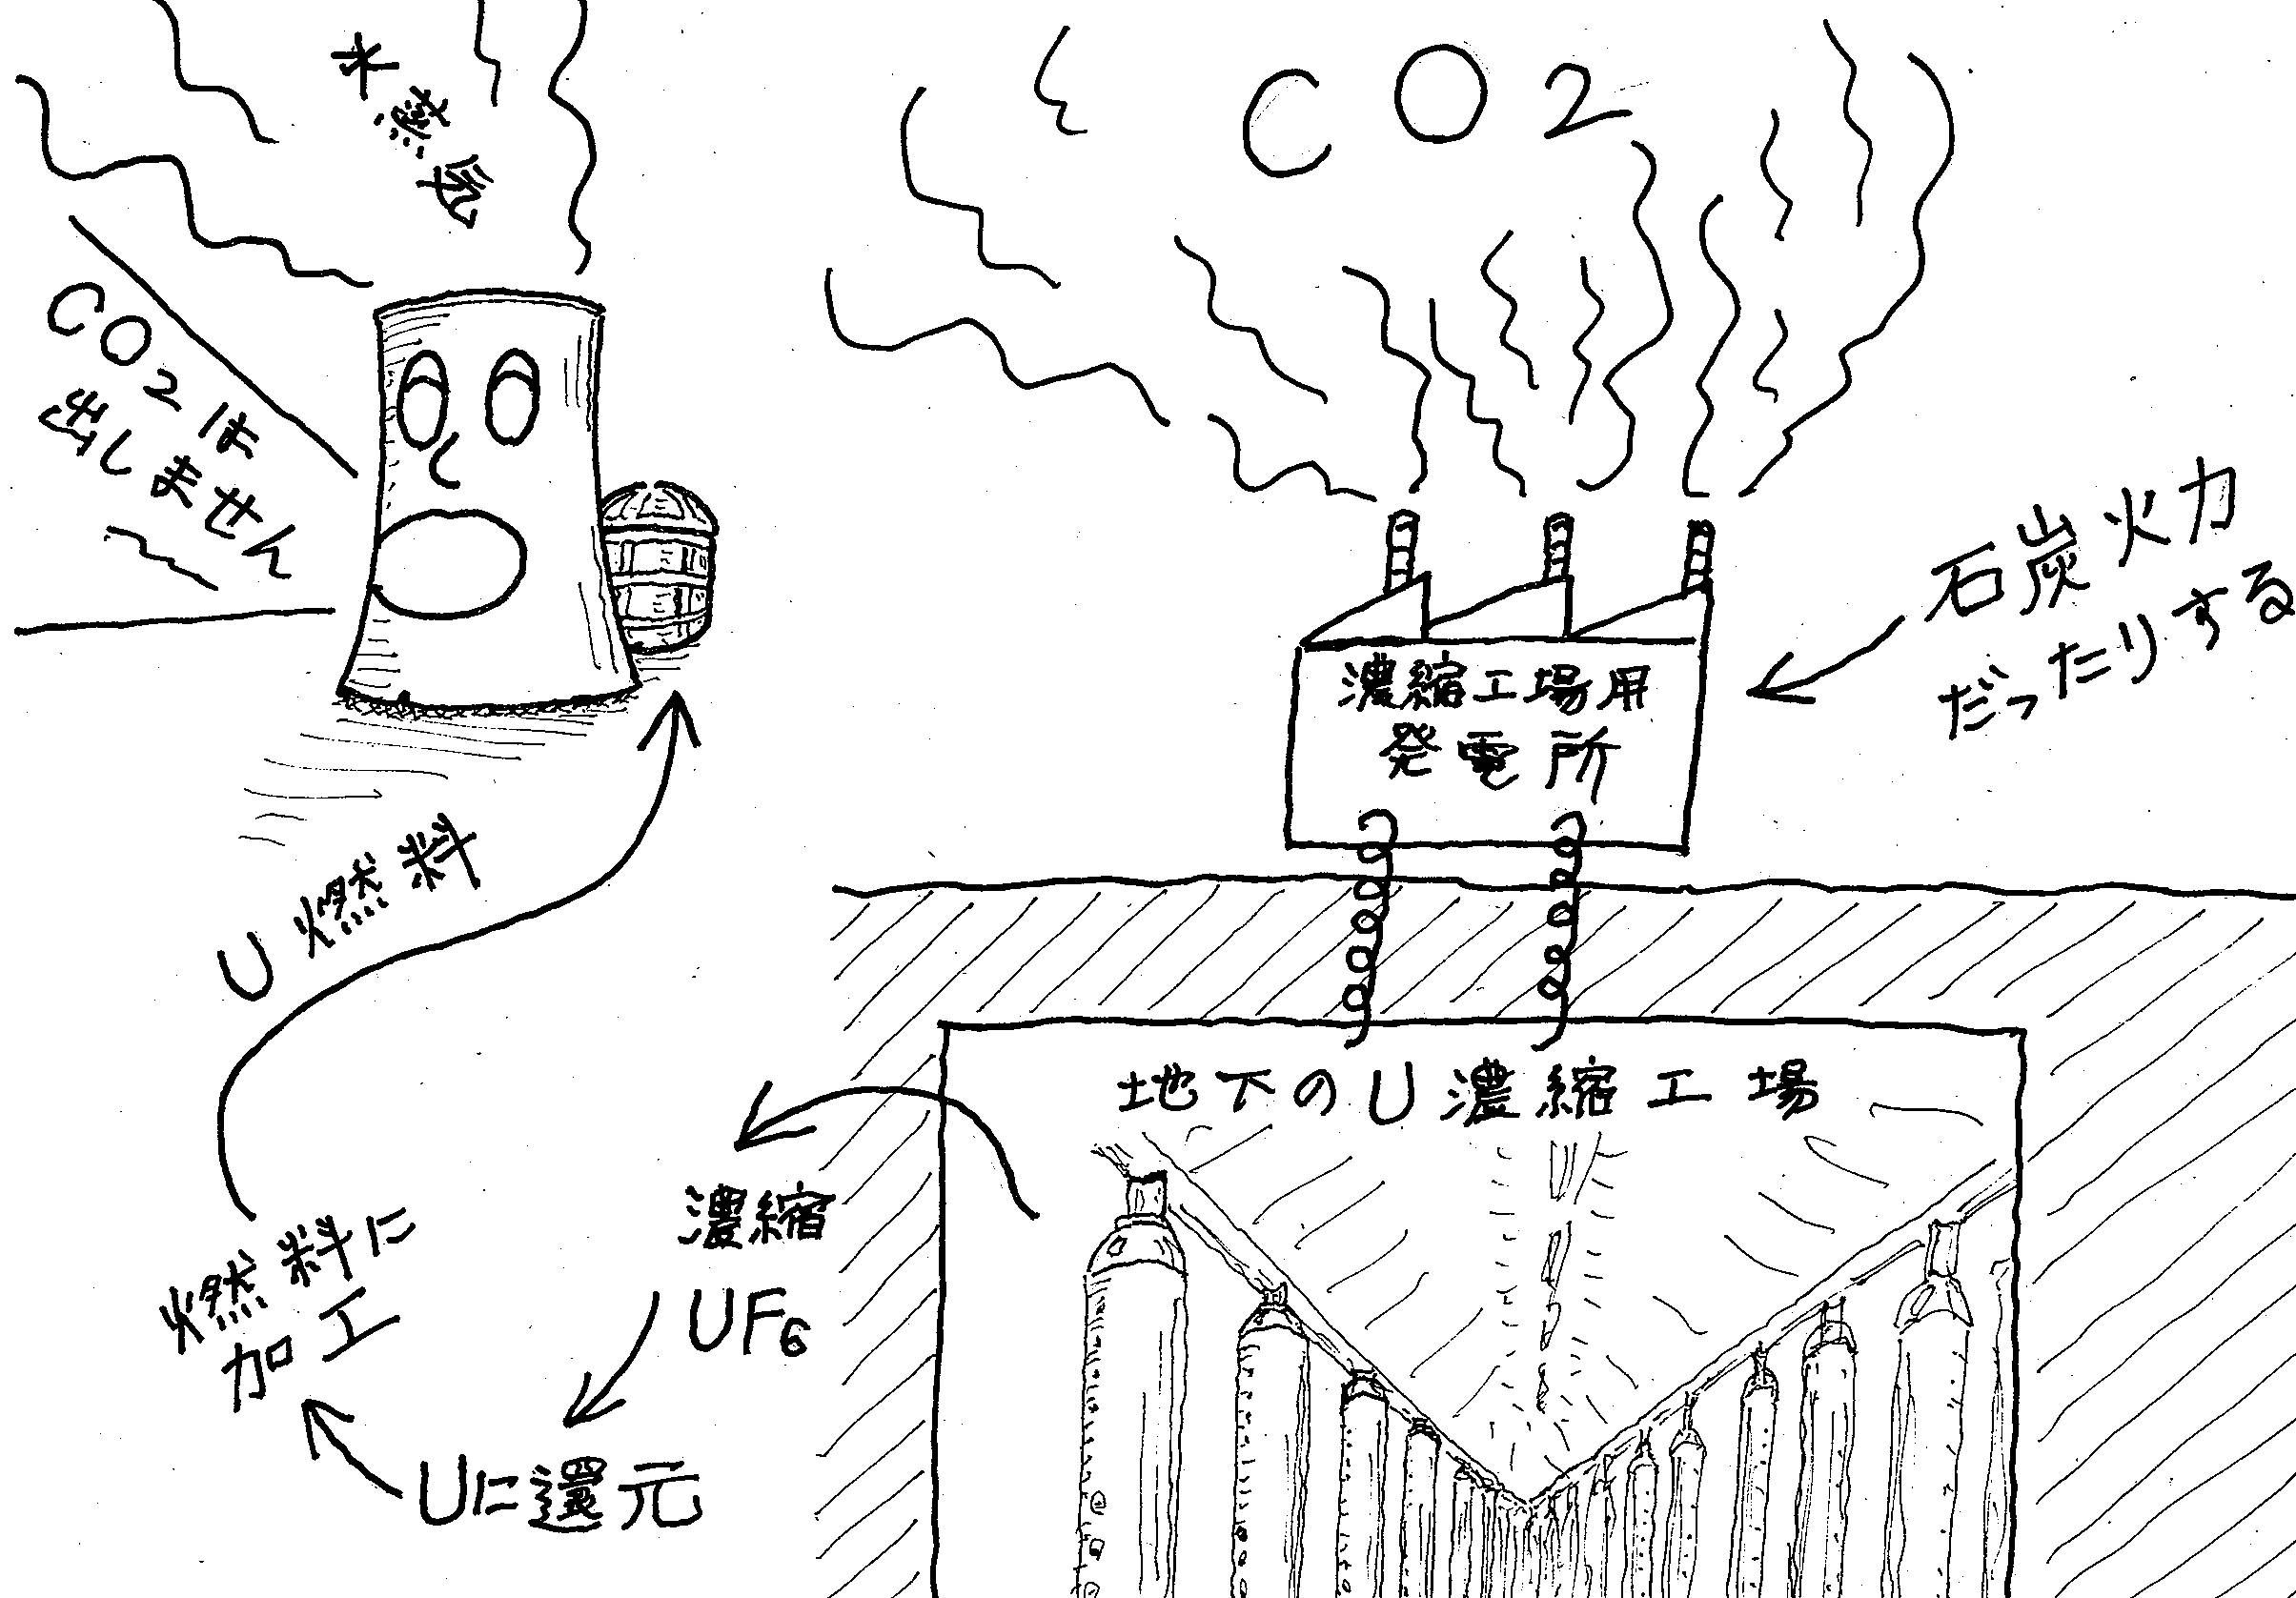 水蒸気
CO2
CO2は
出しません
石炭火力
だったりする
濃縮工場用
発電所
U燃料
地下のU濃縮工場
濃縮
UF6
Uに還元
燃料に
加工